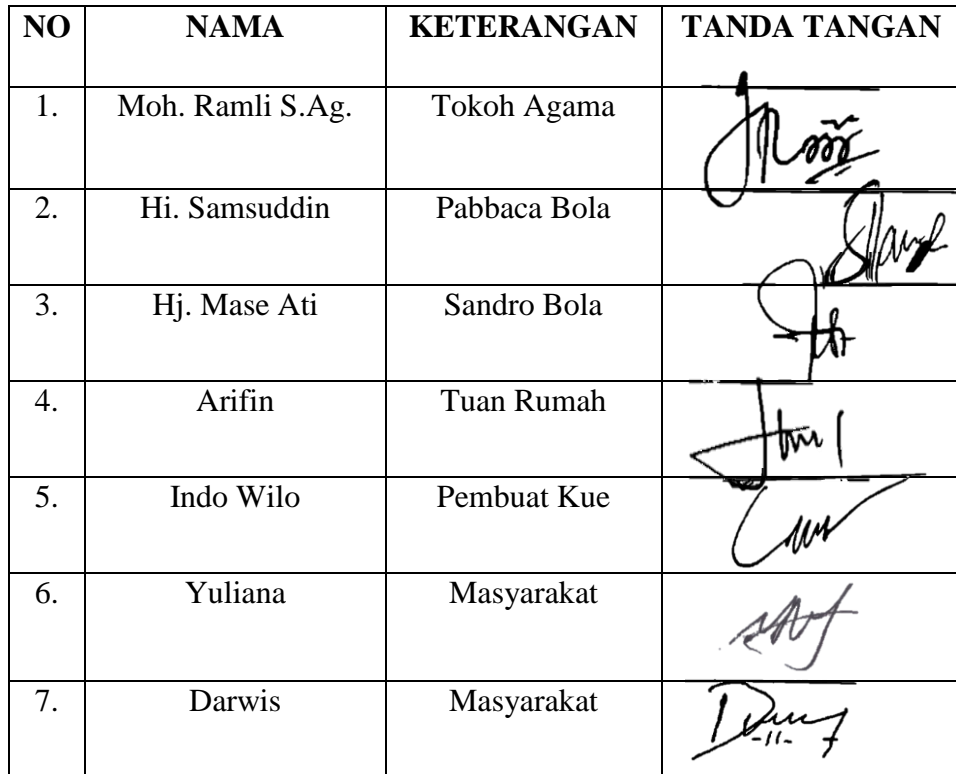 NO NAMA KETERANGAN TANDA TANGAN
1. Moh. Ramli S.Ag. Tokoh Agama
2. Hi. Samsuddin Pabbaca Bola
3. Hj. Mase Ati Sandro Bola
4. Arifin Tuan Rumah
5. Indo Wilo Pembuat Kue
6. Yuliana Masyarakat
7. Darwis Masyarakat